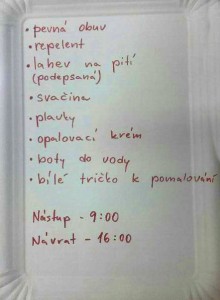 • pevná obuv
• repelent
• lahev na pití
(podepsaná)
• svačina
• plavky
• opalovací krém
• boty do vody
• bílé tričko k pomalování
Nástup - 9:00
Návrat - 16:00